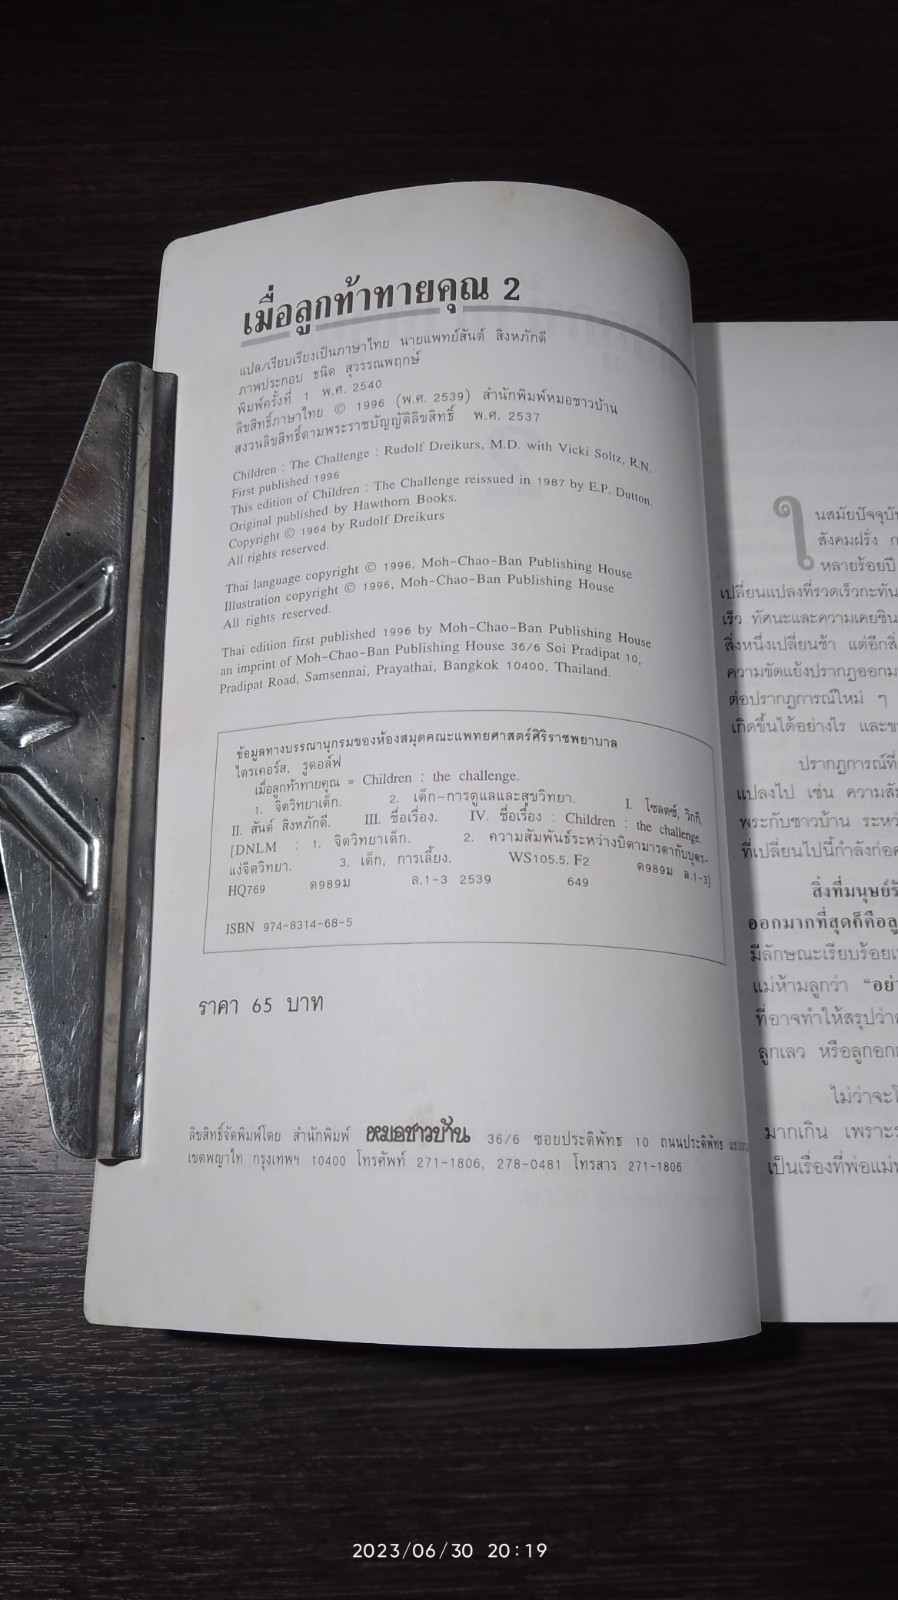 เมื่อลูกท้าทายคุณ 2
แปล/เรียบเรียงเป็นภาษาไทย นายแพทย์สันต์ สิงหภักดี
ภาพประกอบ ธนิต สุวรรณพฤกษ์
พิมพ์ครั้งที่ 1 พ.ศ. 2540
ลิขสิทธิ์ภาษาไทย © 1996 (พ.ศ. 2539) สำนักพิมพ์หมอชาวบ้าน
สงวนลิขสิทธิ์ตามพระราชบัญญัติลิขสิทธิ์ พ.ศ. 2537
Children : The Challenge : Rudolf Dreikurs, M.D. with Vicki Soltz, R.N.
First published 1996
This edition of Children : The Challenge reissued in 1987 by E.P. Dutton.
Original published by Hawthorn Books.
Copyright © 1964 by Rudolf Dreikurs
All rights reserved.
Thai language copyright © 1996, Moh-Chao-Ban Publishing House
Illustration copyright © 1996, Moh-Chao-Ban Publishing House
All rights reserved.
Thai edition first published 1996 by Moh-Chao-Ban Publishing House
an imprint of Moh-Chao-Ban Publishing House 36/6 Soi Pradipat 10,
Pradipat Road, Samsennai, Prayathai, Bangkok 10400, Thailand.
ข้อมูลทางบรรณานุกรมของห้องสมุดคณะแพทยศาสตร์ศิริราชพยาบาล
ไดรเคอร์ส, รูดอล์ฟ
เมื่อลูกท้าทายคุณ = Children : the challenge.
1. จิตวิทยาเด็ก. 2. เด็ก-การดูแลและสุขวิทยา. I. โซลตซ์, วิกกี.
II. สันต์ สิงหภักดี. III. ชื่อเรื่อง. IV. ชื่อเรื่อง : Children : the challenge.
[DNLM : 1. จิตวิทยาเด็ก. 2. ความสัมพันธ์ระหว่างบิดามารดากับบุตร-
แง่จิตวิทยา. 3. เด็ก, การเลี้ยง. WS105.5. F2 ด989ม ล.1-3]
HQ769 ด989ม ล.1-3 2539 649
ISBN 974-8314-68-5
ราคา 65 บาท
ลิขสิทธิ์จัดพิมพ์โดย สำนักพิมพ์ หมอชาวบ้าน 36/6 ซอยประดิพัทธ 10 ถนนประดิพัทธ
เขตพญาไท กรุงเทพฯ 10400 โทรศัพท์ 271-1806, 278-0481 โทรสาร 271-1806
ในสมัยปัจจุบัน
สังคมฝรั่ง
หลายร้อยปี
เปลี่ยนแปลงที่รวดเร็วกะทัน
เร็ว ทัศนะและความเคยชิน
สิ่งหนึ่งเปลี่ยนช้า แต่อีกสิ่
ความขัดแย้งปรากฏออกม
ต่อปรากฏการณ์ใหม่ ๆ
เกิดขึ้นได้อย่างไร และ
ปรากฏการณ์ที่
แปลงไป เช่น ความสัม
พระกับชาวบ้าน ระหว่
ที่เปลี่ยนไปนี้กำลังก่อ
สิ่งที่มนุษย์
ออกมากที่สุดก็คือลู
มีลักษณะเรียบร้อย
แม่ห้ามลูกว่า “อย่า
ที่อาจทำให้สรุปว่า
ลูกเลว หรือลูกอก
ไม่ว่าจะ
มากเกิน เพราะ
เป็นเรื่องที่พ่อแม่
2023/06/30 20:19